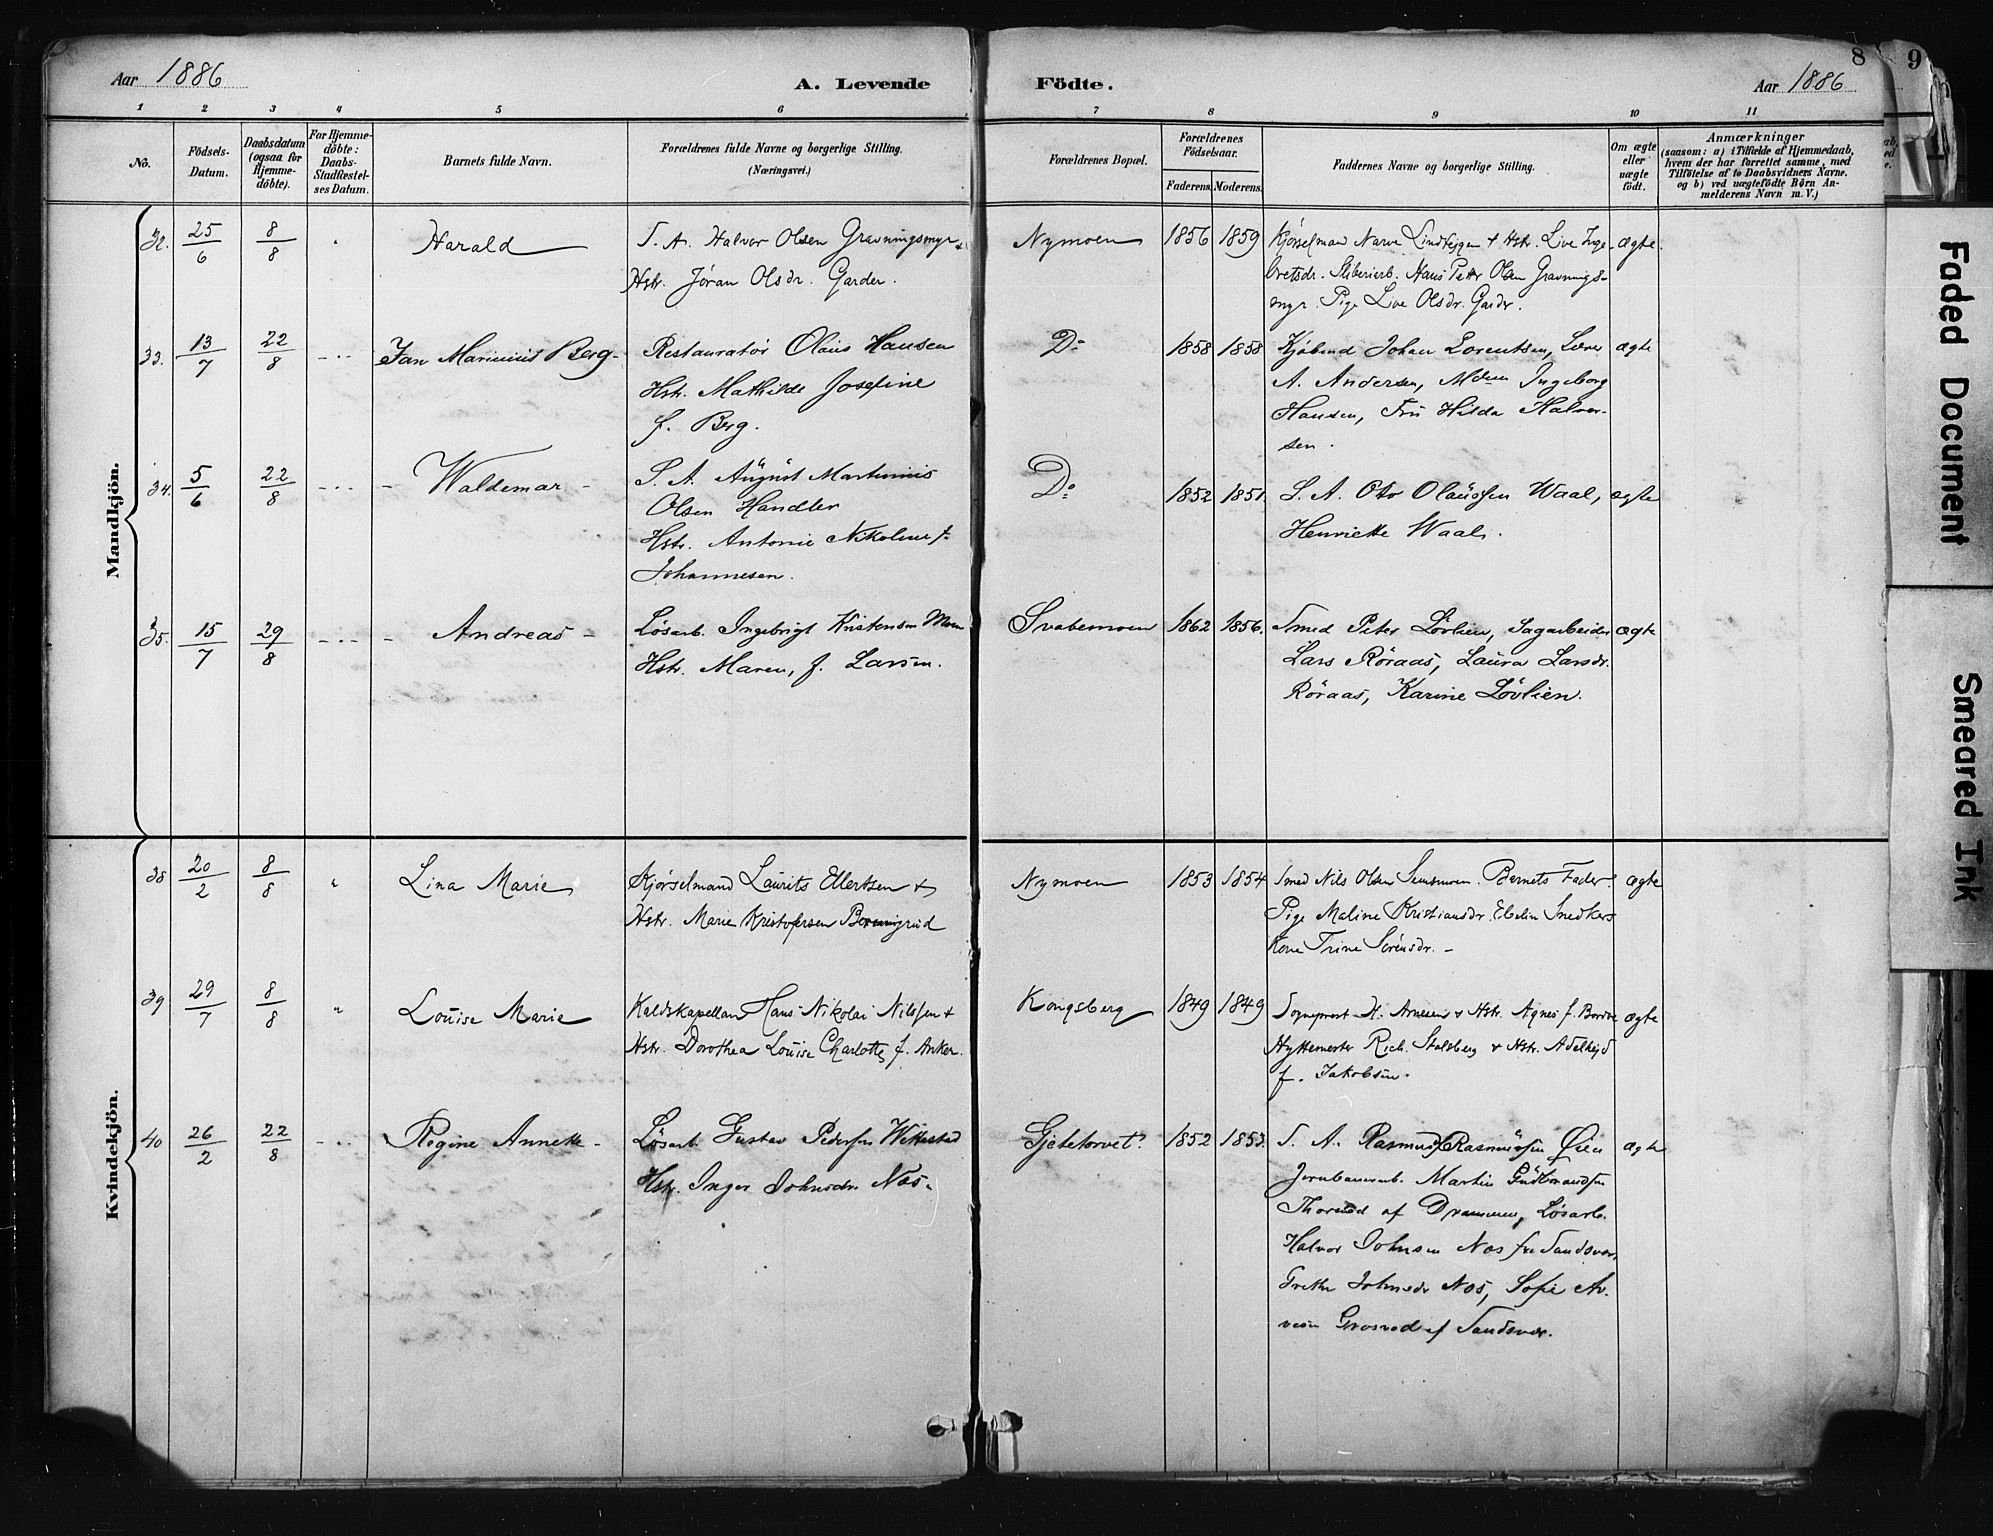 8 9
Aar 1886 A. Levende Födte. Aar 1886
1 2 3 4 5 6 7 8 9 10 11
No.
Födsels-
Datum.
Daabsdatum
(ogsaa for
Hjemme-
döbte).
For Hjemme-
döbte:
Daabs-
Stadfæstel-
ses Datum.
Barnets fulde Navn.
Forældrenes fulde Navne og borgerlige Stilling.
(Næringsvei.)
Forældrenes Bopæl.
Forældrenes
Födselsaar.
Faderens. Moderens.
Faddernes Navne og borgerlige Stilling.
Om ægte
eller
uægte
födt.
Anmærkninger
(saasom: a) i Tilfælde af Hjemmedaab,
hvem der har forrettet samme, med
Tilföielse af to Daabsvidners Navne.
og b) ved uægtefödte Börn An-
melderens Navn m. V.)
Mandkjön.
32. 25/6 8/8 " Harald
S. A. Halvor Olsen Gravningsmyr +
Hstr. Jöran Olsdr. Garder.
Nymoen 1856 1859
Kjørselmand Narve Lindtejgen + Hstr. Live Inge-
bretsdr. Sliberierb. Hans Petr Olsen Gravnings-
myr. Pige Live Olsdr. Garder.
ægte.
33. 13/7 22/8 Jan Marinius Berg
Restauratør Olaus Hansen
Hstr. Mathilde Josefine
f. Berg.
Do 1858 1858
Kjøbmd Johan Lorentsen, Lærer
A. Andersen, Mdm Ingeborg
Hansen, Fru Hilda Halvor-
sen.
ægte
34. 5/6 22/8 Waldemar
S. A. August Martinius
Olsen Handler
Hstr. Antonie Nikoline f.
Johannesen.
Do 1852 1851.
S. A. Otto Olaussen Waal,
Henriette Waal.
ægte
35. 15/7 29/8 Andreas
Løsarb. Ingebrigt Kristensen Moen
Hstr. Maren, f. Larsen.
Svabemoen 1862 1856.
Smed Peter Løvlien, Sagarbeider
Lars Røraas, Laura Larsdr.
Røraas, Karine Løvlien.
ægte
Kvindekjön.
38 20/2 8/8 " Lina Marie
Kjørselmand Laurits Ellertsen +
Hstr. Marie Kristofersen
Nymoen 1853 1854
Smed Nils Olsen Barnets Fader.
Pige Maline Kristiansdr. Snedker
Kone Trine Sörensdr. -
ægte
39 29/7 8/8 " Louise Marie
Kaldskapellan Hans Nikolai Nilssen +
Hstr. Dorothea Louise Charlotte f. Anker.
Kongsberg 1849 1849
Sogneprest H. Arnesen + Hstr. Agnes f.
Hyttemester Rich. Stalsberg + Hstr. Adelhejd
f. Jakobsen.
ægte
40 26/2 22/8 Regine Annette
Løsarb. Gustav Pedersen Wittestad
Hstr. Inger Johnsdr. Næs.
Gjetetorvet. 1852 1853.
S. A. Rasmus Rasmussen Øien
Jernbanearb. Martin Gudbrandsen
af Drammen, Løsarb.
Halvor Johnsen Næs fra Sandsvær,
Grethe Johnsdr Næs, Sofie Ar-
vesen af Sandsvær.
ægte
Faded Document
Smeared Ink